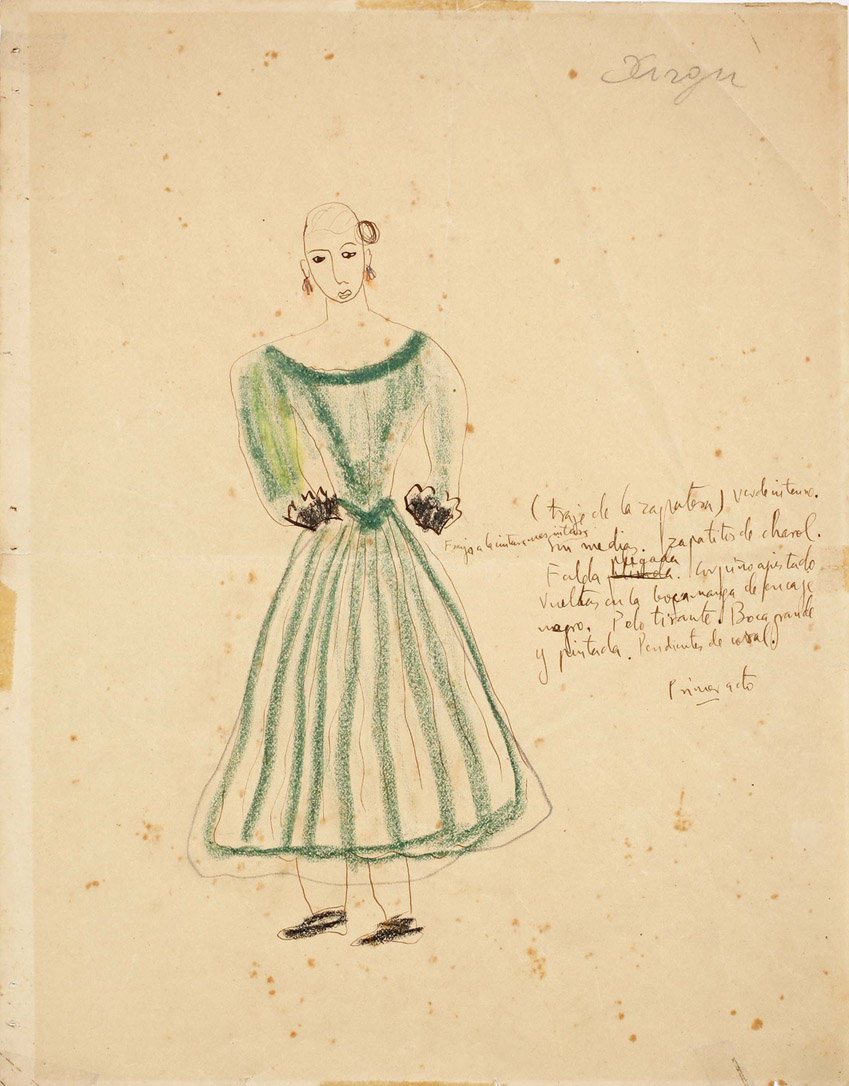 Xirgu
(traje de la zapatera) verde intenso.
Franjas a la cintura
sin medias. Zapatitos de charol.
Falda plegada. Corpiño ajustado
Vueltas en la bocamanga de encaje
negro. Pelo tirante. Boca grande
y pintada. Pendientes de coral.
Primer acto